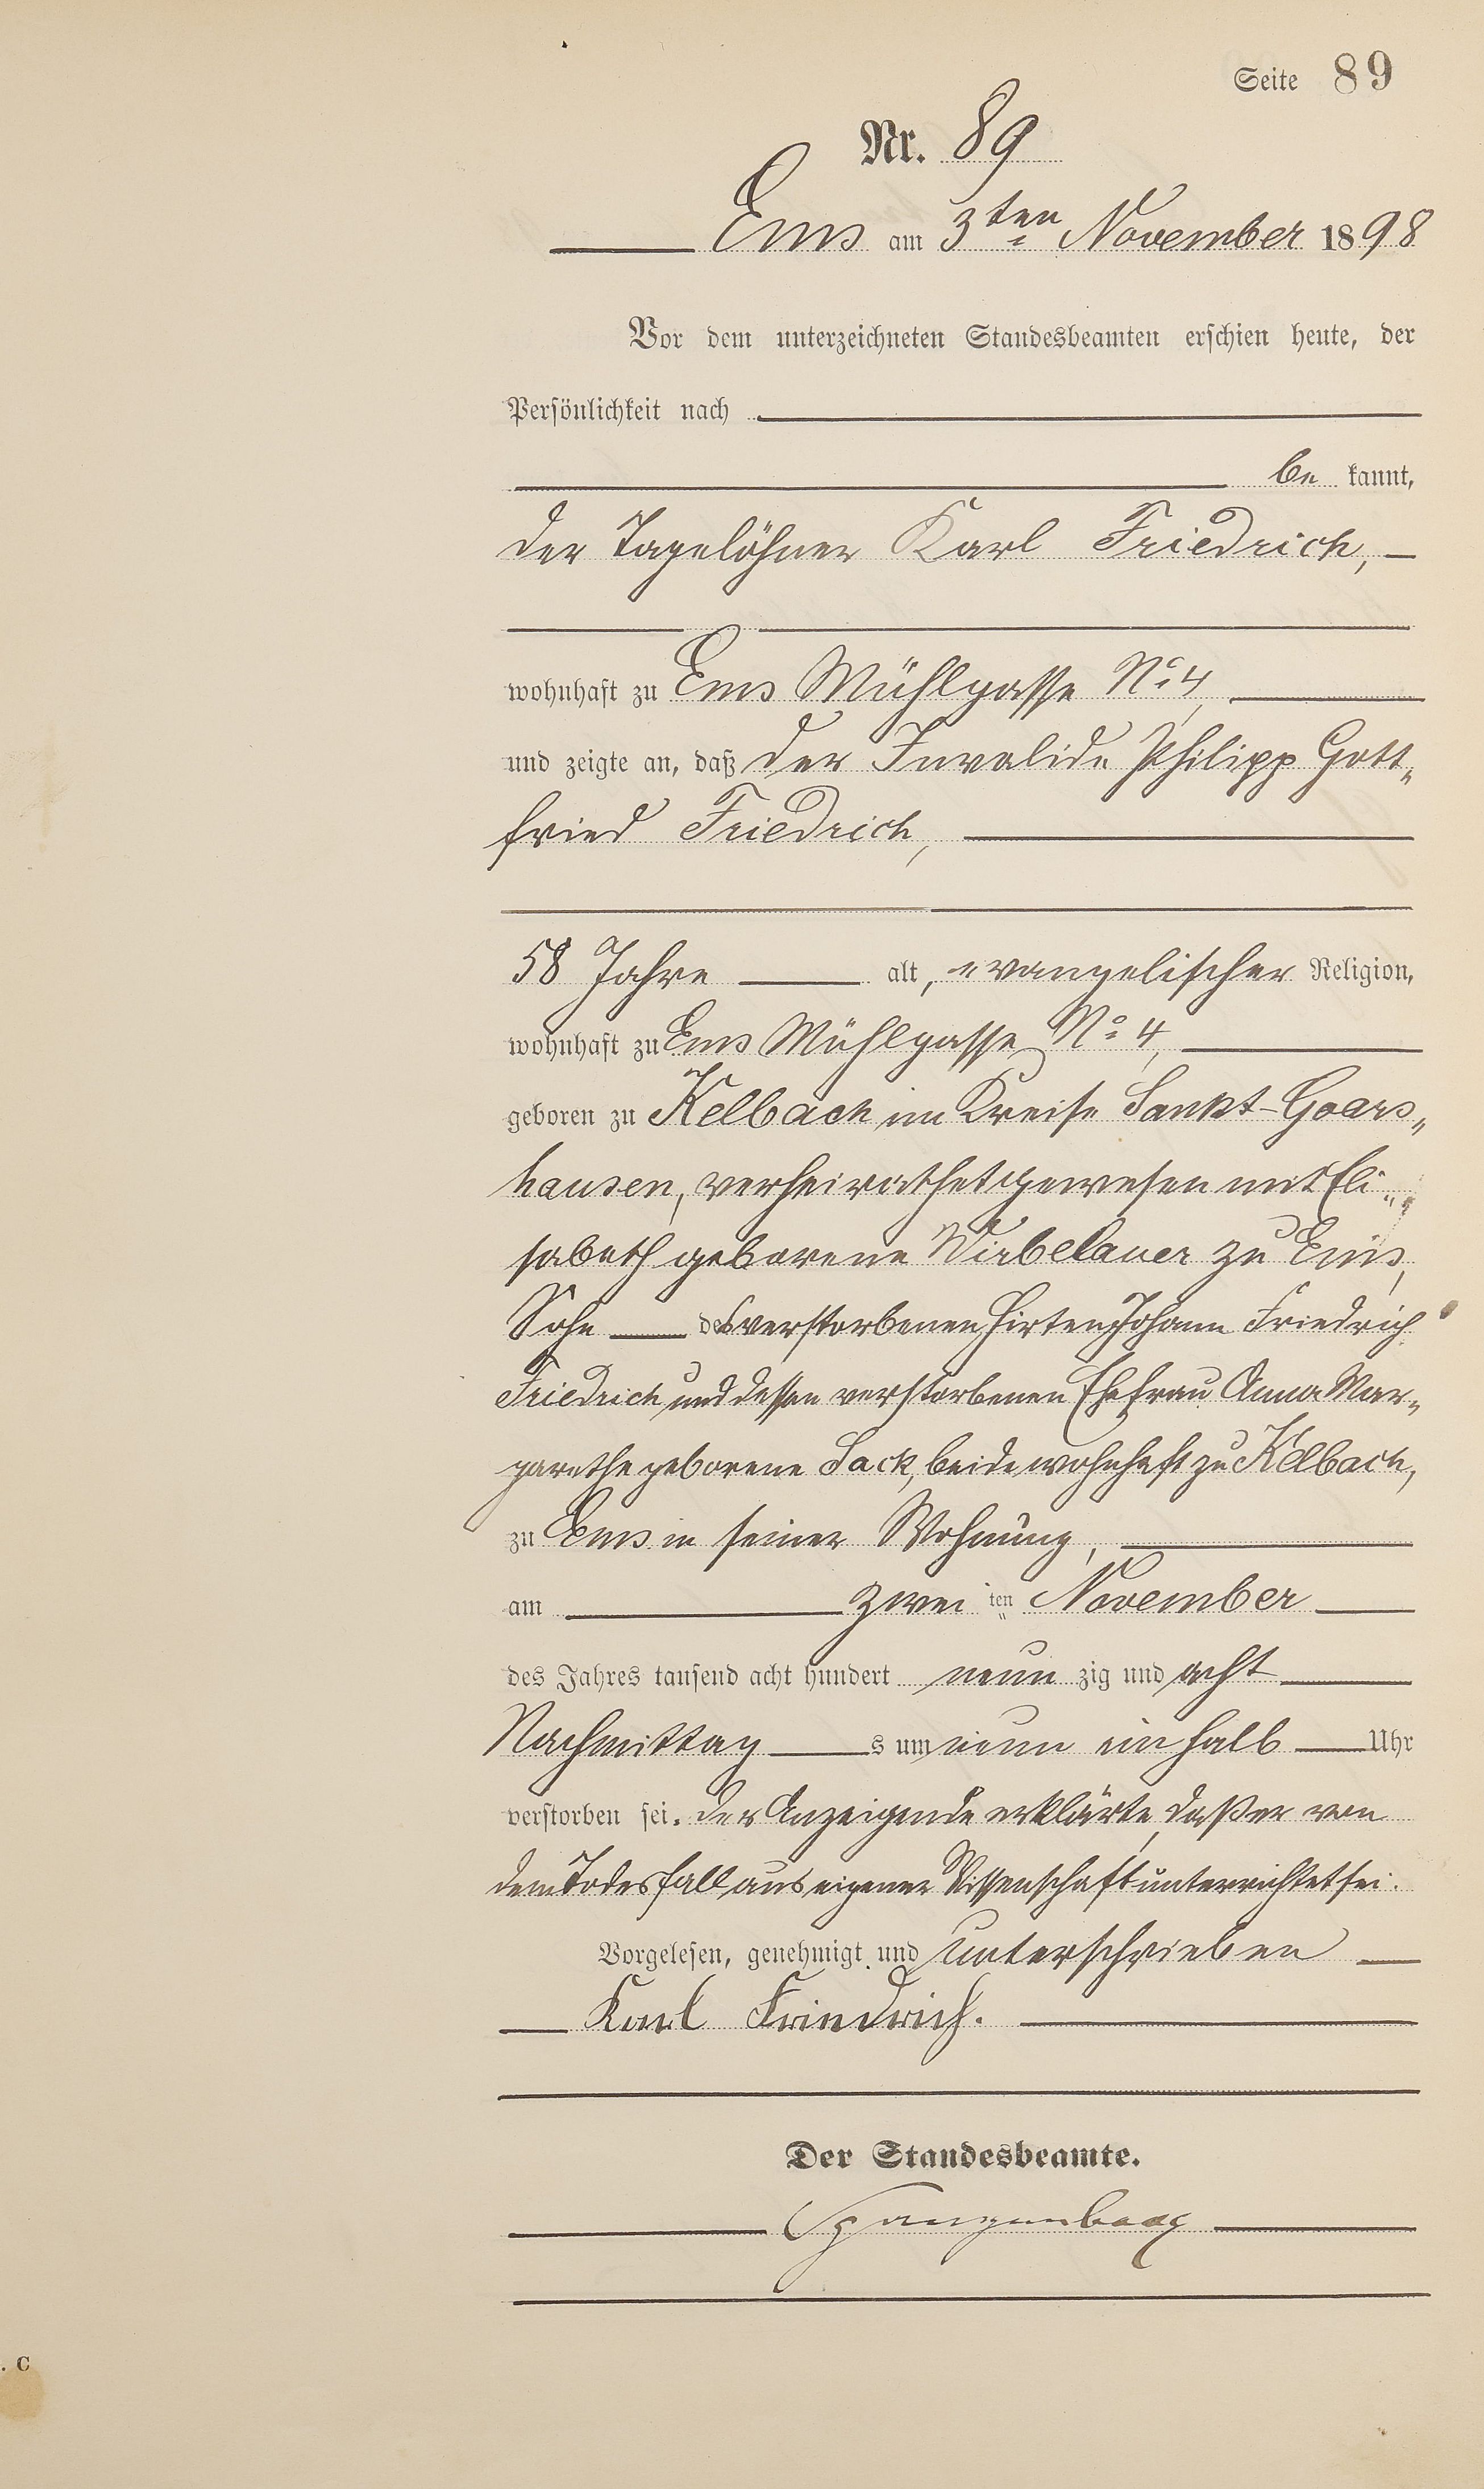 Seite 89
Nr. 89
Ems am 3ten November 1898
Vor dem unterzeichneten Standesbeamten erschien heute, der
Persönlichkeit nach
be kannt,
der Tagelöhner Karl Friedrich,
wohnhaft zu Ems Mühlgasse No 4,
und zeigte an, daß der Invalide Philipp Gott„
fried Friedrich,
58 Jahre alt, evangelischer Religion,
wohnhaft zu Ems Mühlgasse No 4,
geboren zu Kelbach im Kreise Sankt-Goars„
hausen, verheirathet gewesen mit Eli„
sabeth geborene Wirbelauer zu Ems,
Sohn des verstorbenen Hirten Johann Friedrich
Friedrich und dessen verstorbenen Ehefrau Anna Mar„
garethe geborene Sack, beide wohnhaft zu Kelbach,
zu Ems in seiner Wohnung,
am zwei ten November
des Jahres tausend acht hundert neun zig und acht
Nachmittag s um neun ein halb Uhr
verstorben sei. Der Anzeigende erklärte, daß er von
dem Todesfall aus eigener Wissenschaft unterrichtet sei.
Vorgelesen, genehmigt und unterschrieben
Karl Friedrich.
Der Standesbeamte.
Spangenberg
. C